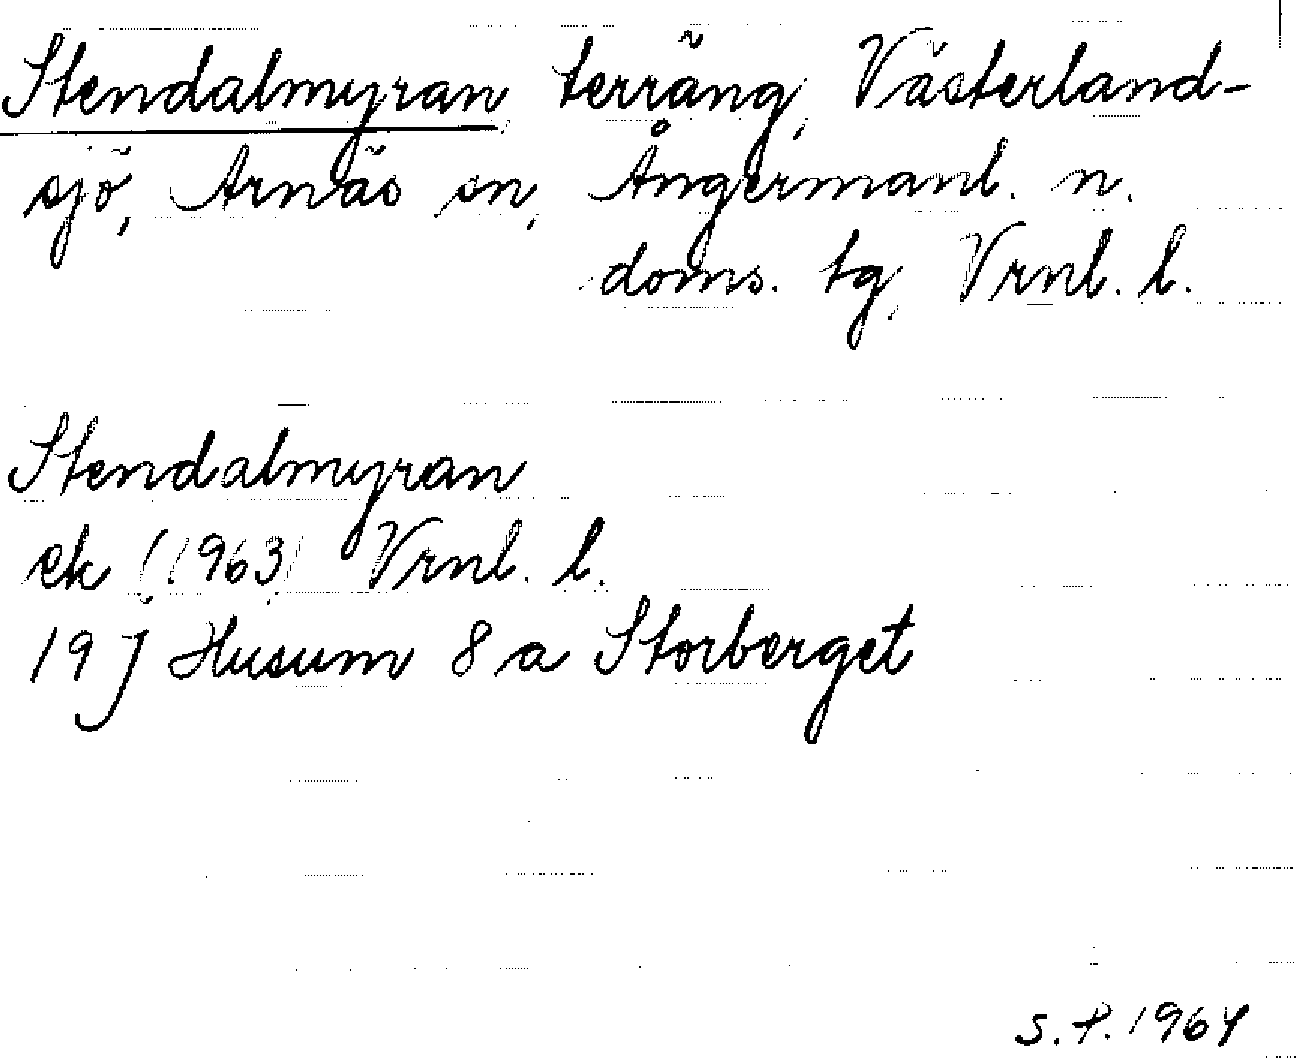 Stendalmyran, terräng, Västerland-
sjö, Arnäs sn, Ångermanl. n.
doms. tg, Vrnl. l.
Stendalmyran
ek (1963) Vrnl. l.
19 J Husum 8 a Storberget
S.P. 1964